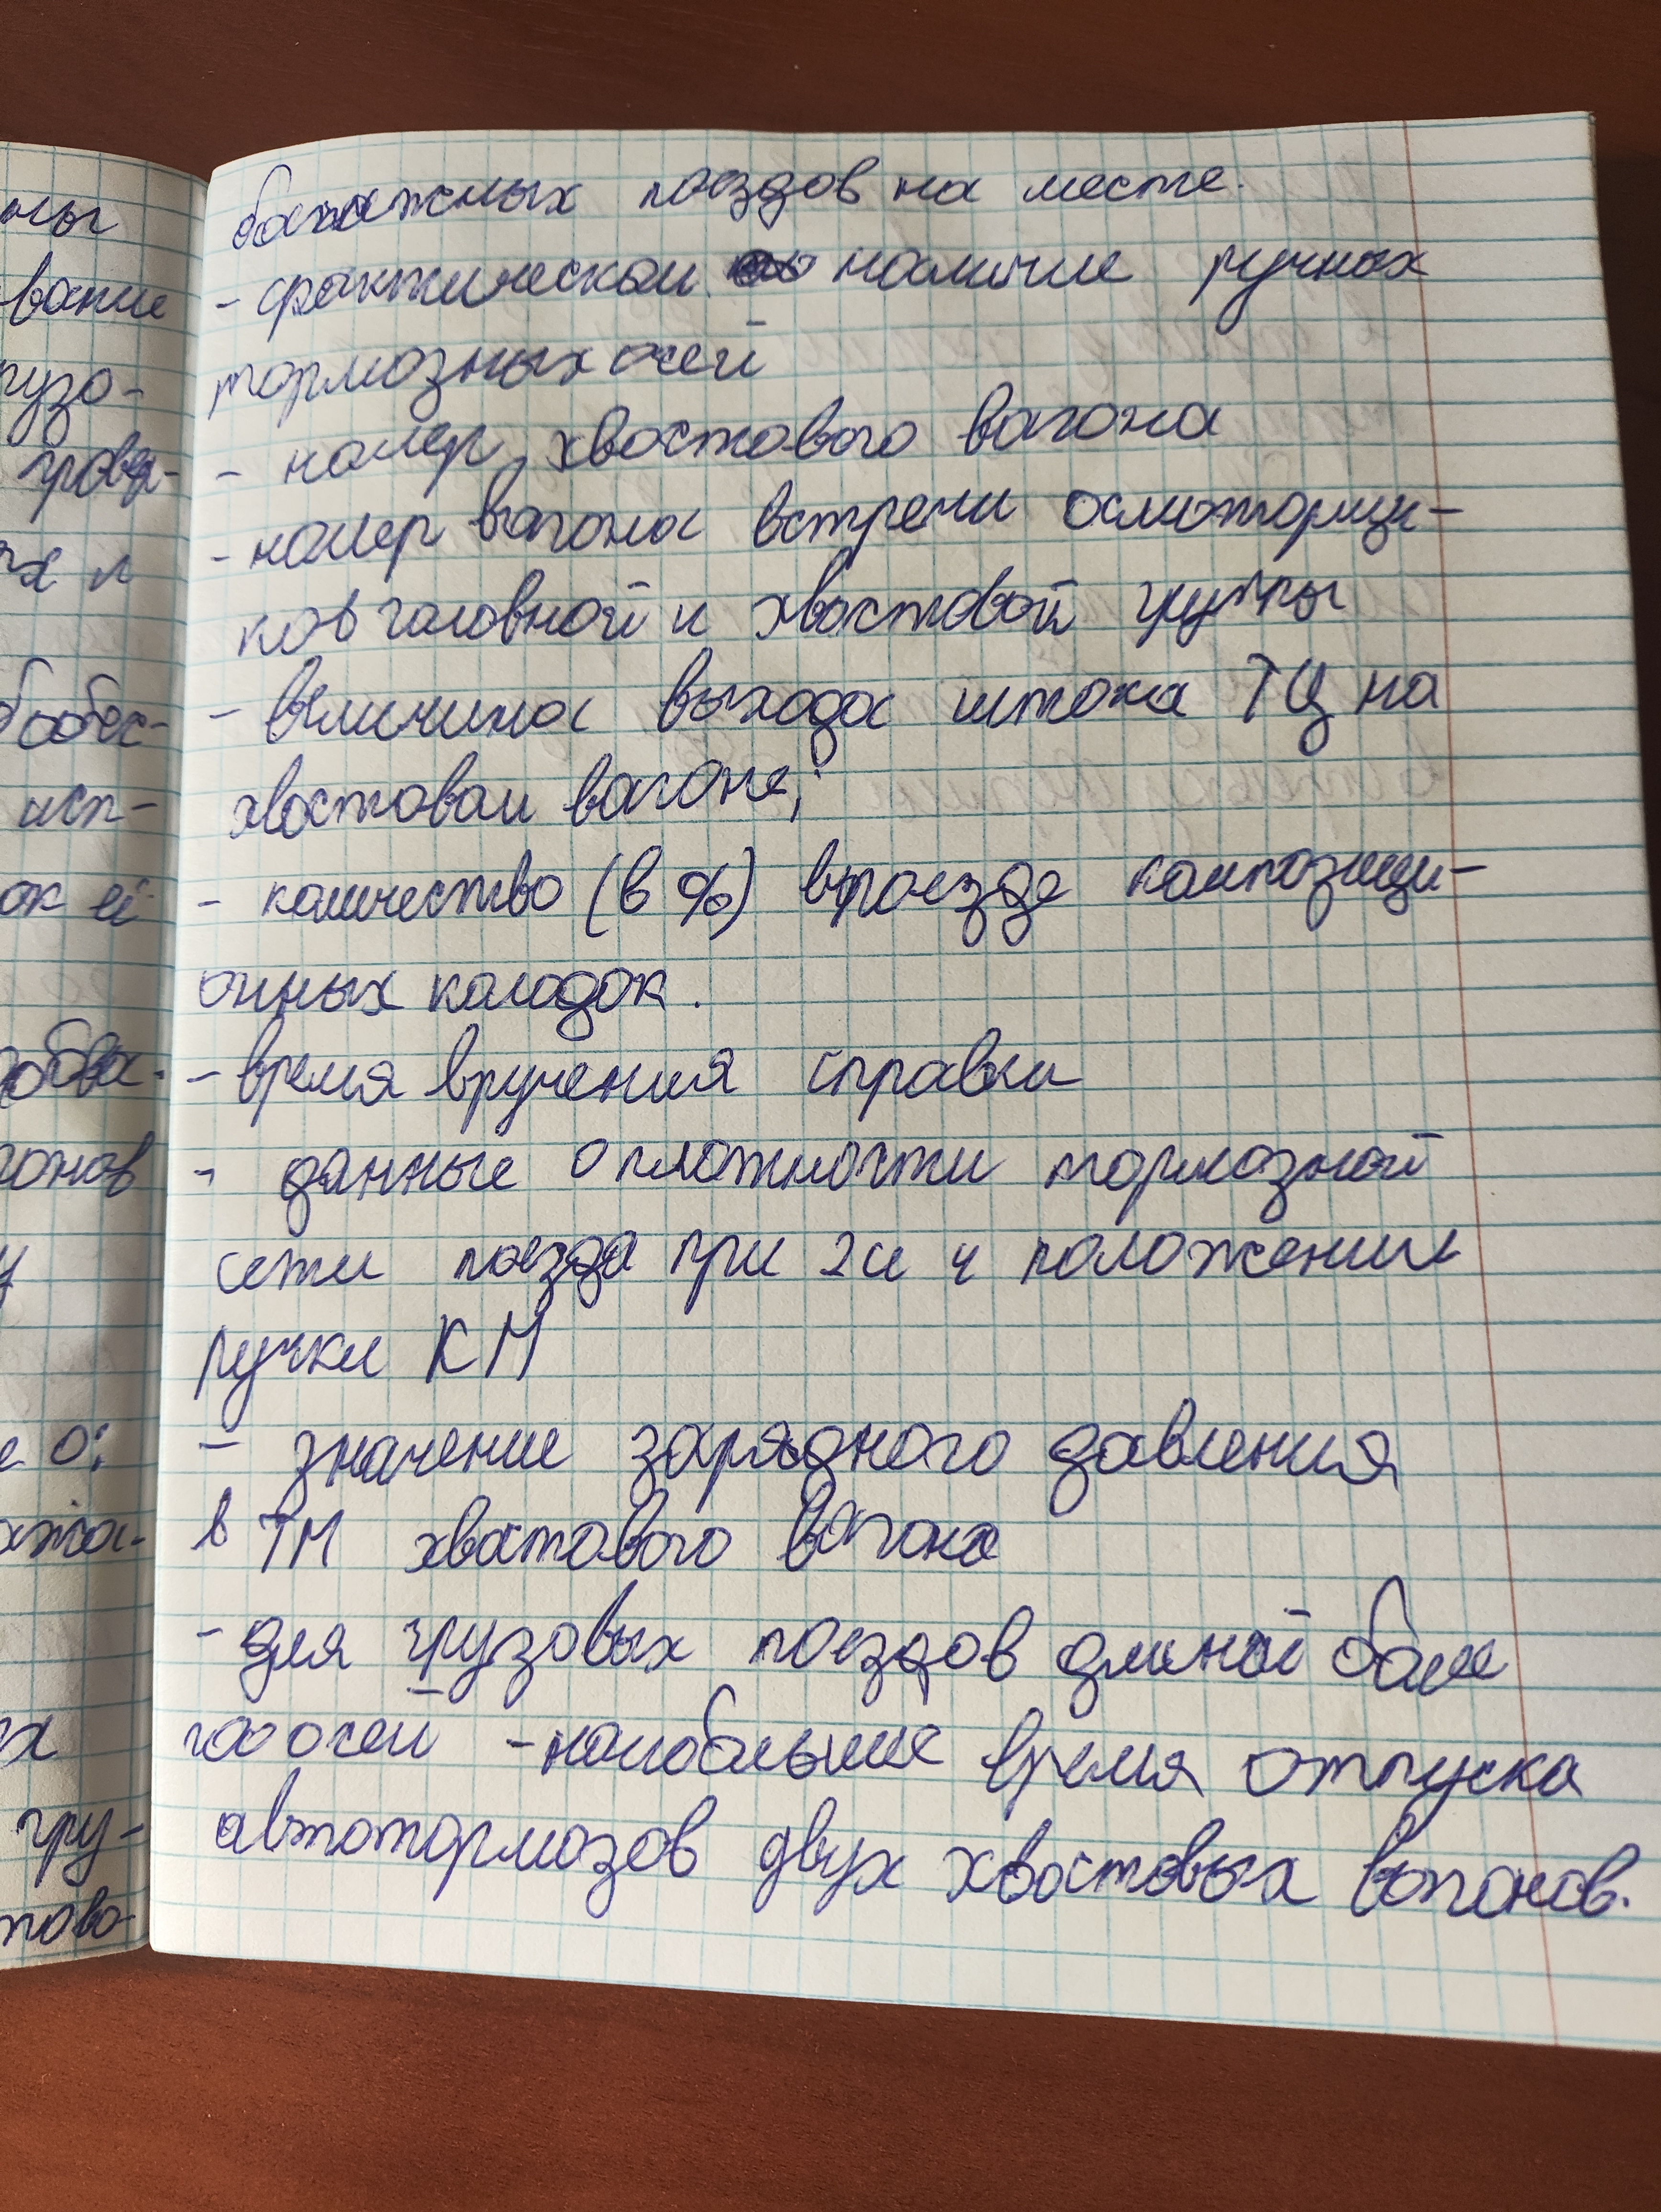 багажных поездов на месте.
- фактическом наличие ручных
тормозных осей
- номер хвостового вагона
- номер вагона встречи осмоторщи-
ков головной и хвостовой группы
- величина выхода штока ТЦ на
хвостовом вагоне;
- количество (в %) в поезде композици-
онных колодок.
- время вручения справки
- данные о плотности тормозной
сети поезда при 2 и 4 положении
ручки КМ
- значение зарядного давления
в ТМ хвостового вагона
- для грузовых поездов длиной более
осей - наибольшее время отпуска
автотормозов двух хвостовых вагонов.
ны
вание
грузо-
х и
исп-
ок ей
гонов
у
е о:
х
гру-